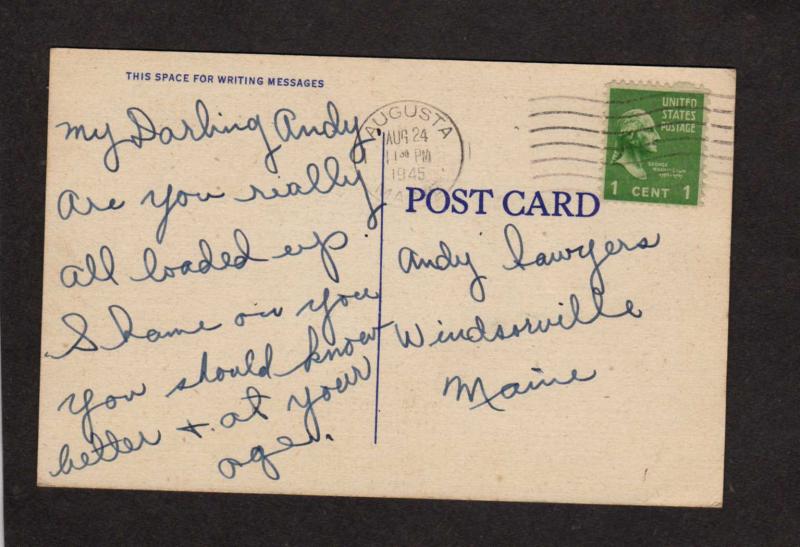 THIS SPACE FOR WRITING MESSAGES
My Darling Andy.
Are you really
all loaded up.
Shame on you
you should know
better + at your
age.
AUGUSTA
AUG 24
11 30 PM
1945
UNITED
STATES
POSTAGE
GEORGE
WASHINGTON
1 CENT 1
POST CARD
Andy Sawyers
Windsorville
Maine